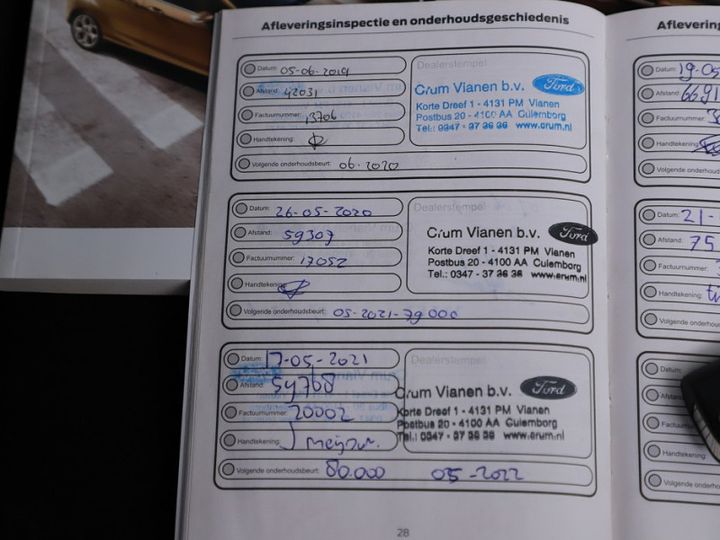 Afleveringsinspectie en onderhoudsgeschiedenis
Datum: 05-06-2019
Afstand: 42031
Factuurnummer: 13706
Handtekening:
Volgende onderhoudsbeurt: 06-2020
Dealerstempel
Crum Vianen b.v. Ford
Korte Dreef 1 - 4131 PM Vianen
Postbus 20 - 4100 AA Culemborg
Tel.: 0347 - 37 36 36 www.crum.nl
Datum: 26-05-2020
Afstand: 59307
Factuurnummer: 17052
Handtekening:
Volgende onderhoudsbeurt: 05-2021-79000
Dealerstempel
Crum Vianen b.v. Ford
Korte Dreef 1 - 4131 PM Vianen
Postbus 20 - 4100 AA Culemborg
Tel.: 0347 - 37 36 36 www.crum.nl
Datum: 17-05-2021
Afstand: 59768
Factuurnummer: 20002
Handtekening:
Volgende onderhoudsbeurt: 80.000 05-2022
Dealerstempel
Crum Vianen b.v. Ford
Korte Dreef 1 - 4131 PM Vianen
Postbus 20 - 4100 AA Culemborg
Tel.: 0347 - 37 36 36 www.crum.nl
28
Datum:
Afstand:
Factuurnummer:
Handtekening:
Volgende onderhoudsbeurt
Datum: 21-
Afstand: 75
Factuurnummer:
Handtekening:
Volgende onderho
Datum:
Afstand:
Factuurnummer:
Handtekening:
Volgende onderho